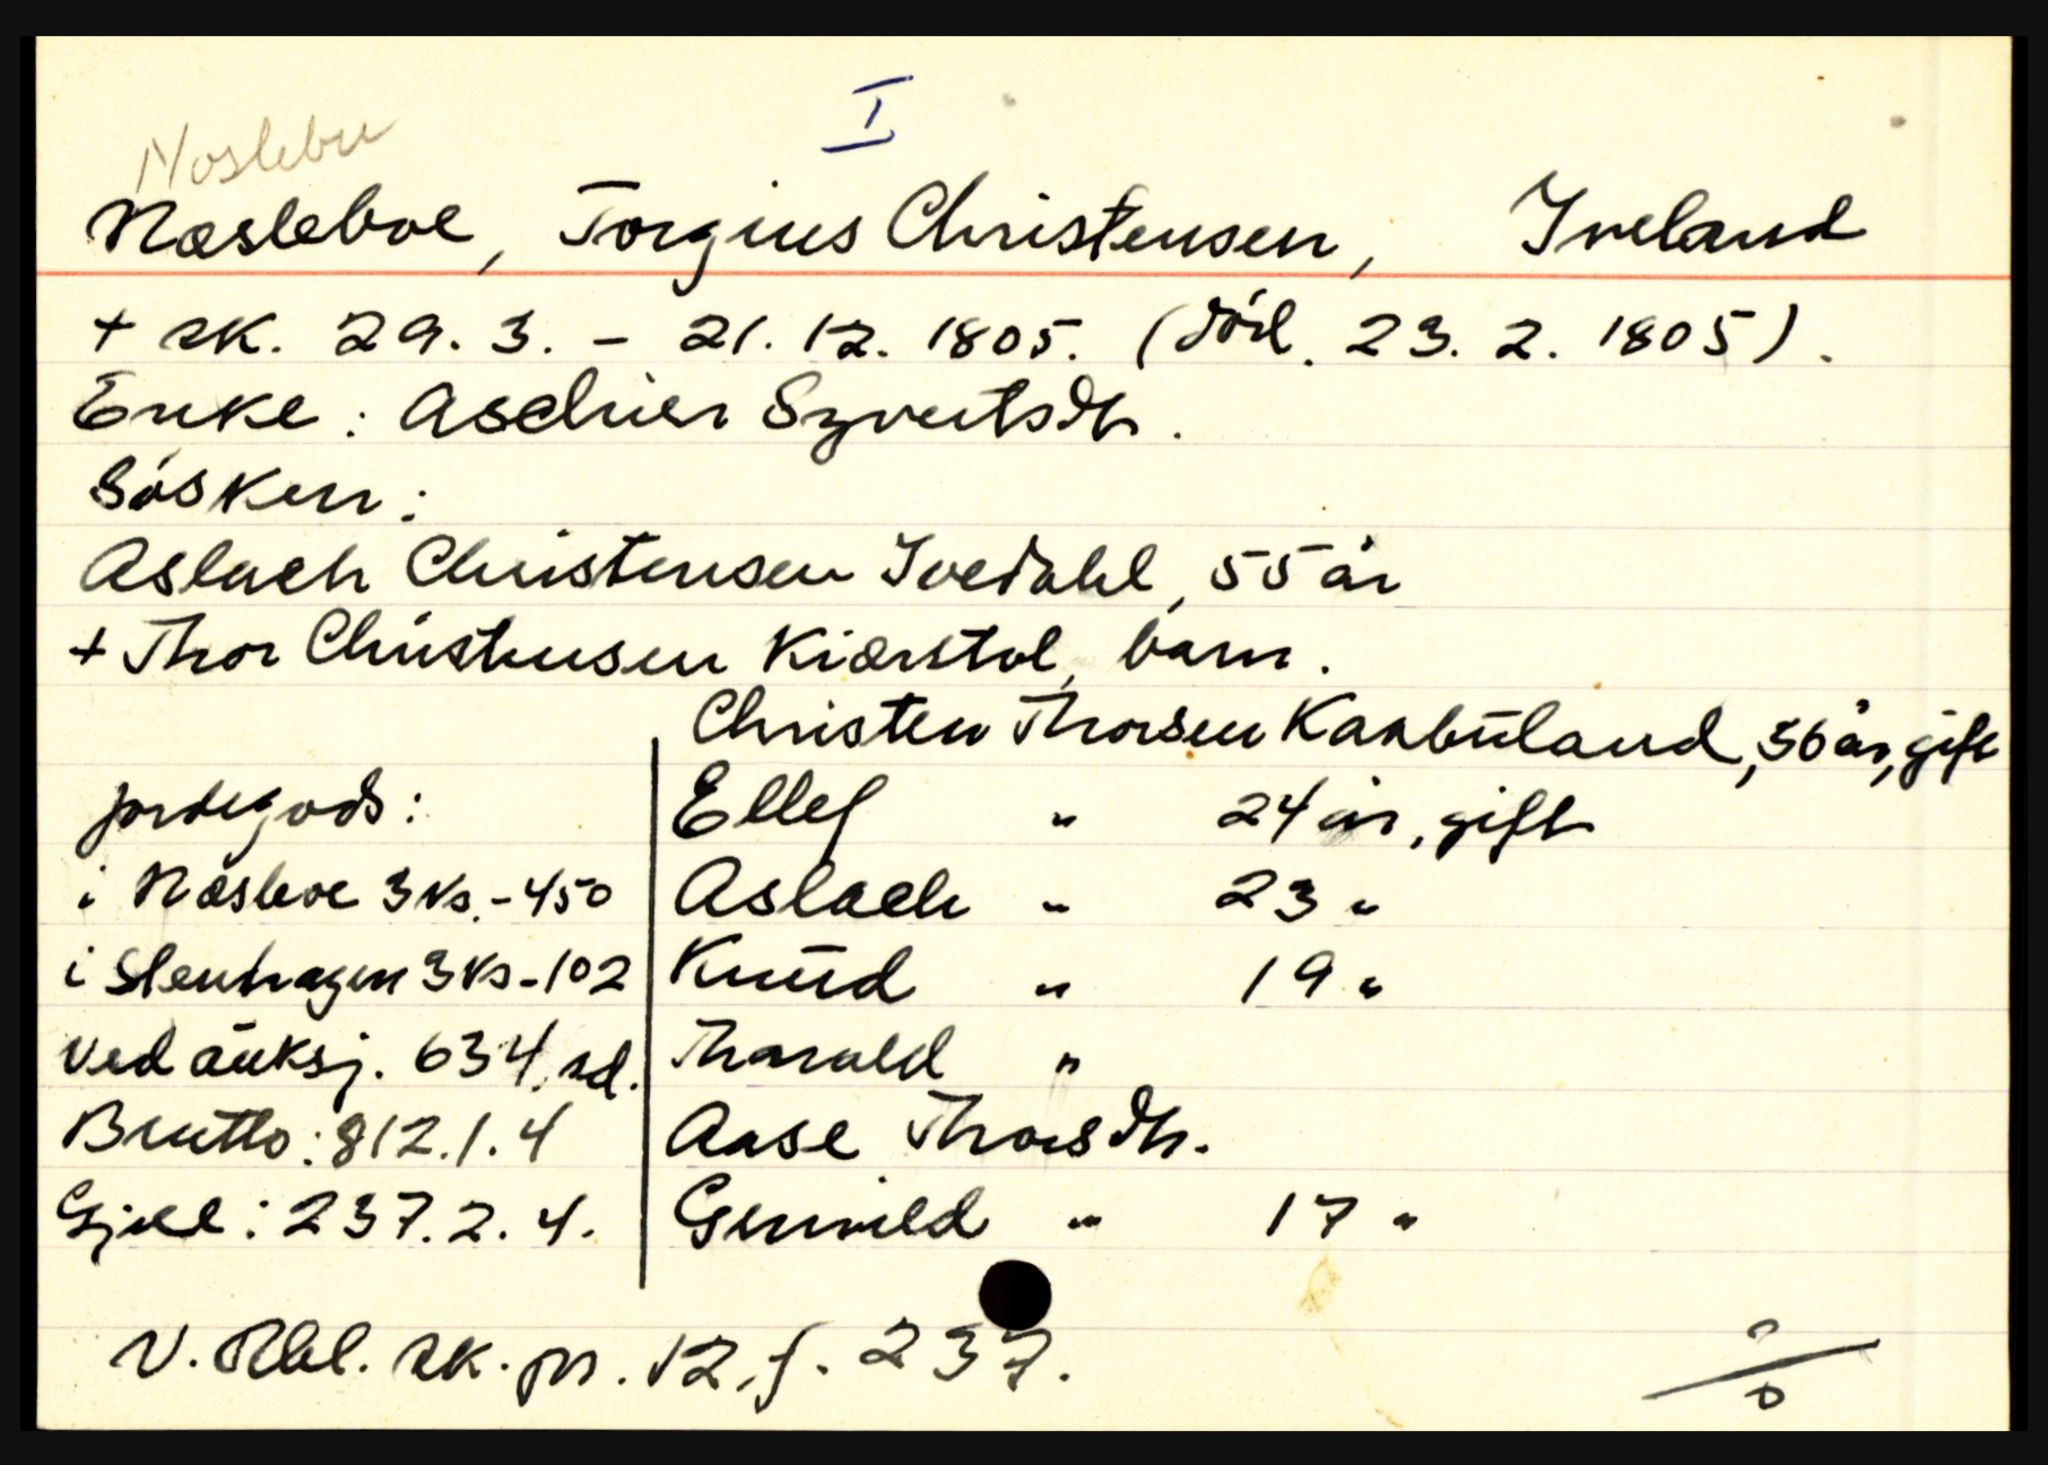 I
Noslebu
Næsleboe, Torgius Christensen, Iveland
+ sk. 29. 3. - 21. 12. 1805. (död. 23. 2. 1805).
Enke: Aschier Syvertsdtr.
Sösken:
Aslach Christensen Ivedahl, 55 år
+ Thor Christensen Kiærstol, barn.
Christen Thorsen Kaabuland, 36 år, gift
Ellef " 24 år, gift
Aslach " 23 "
Knud " 19 "
Tharald "
Aase Thorsdtr.
Gunvild " 17 "
jordegods:
i Næsleboe 3 ks. - 450
i Stenhagen 3 ks - 102
ved auksj. 634 rd.
Brutto: 812.1.4
Gjeld: 237.2.4.
V. Rbl. sk. pr. 12, f. 237.